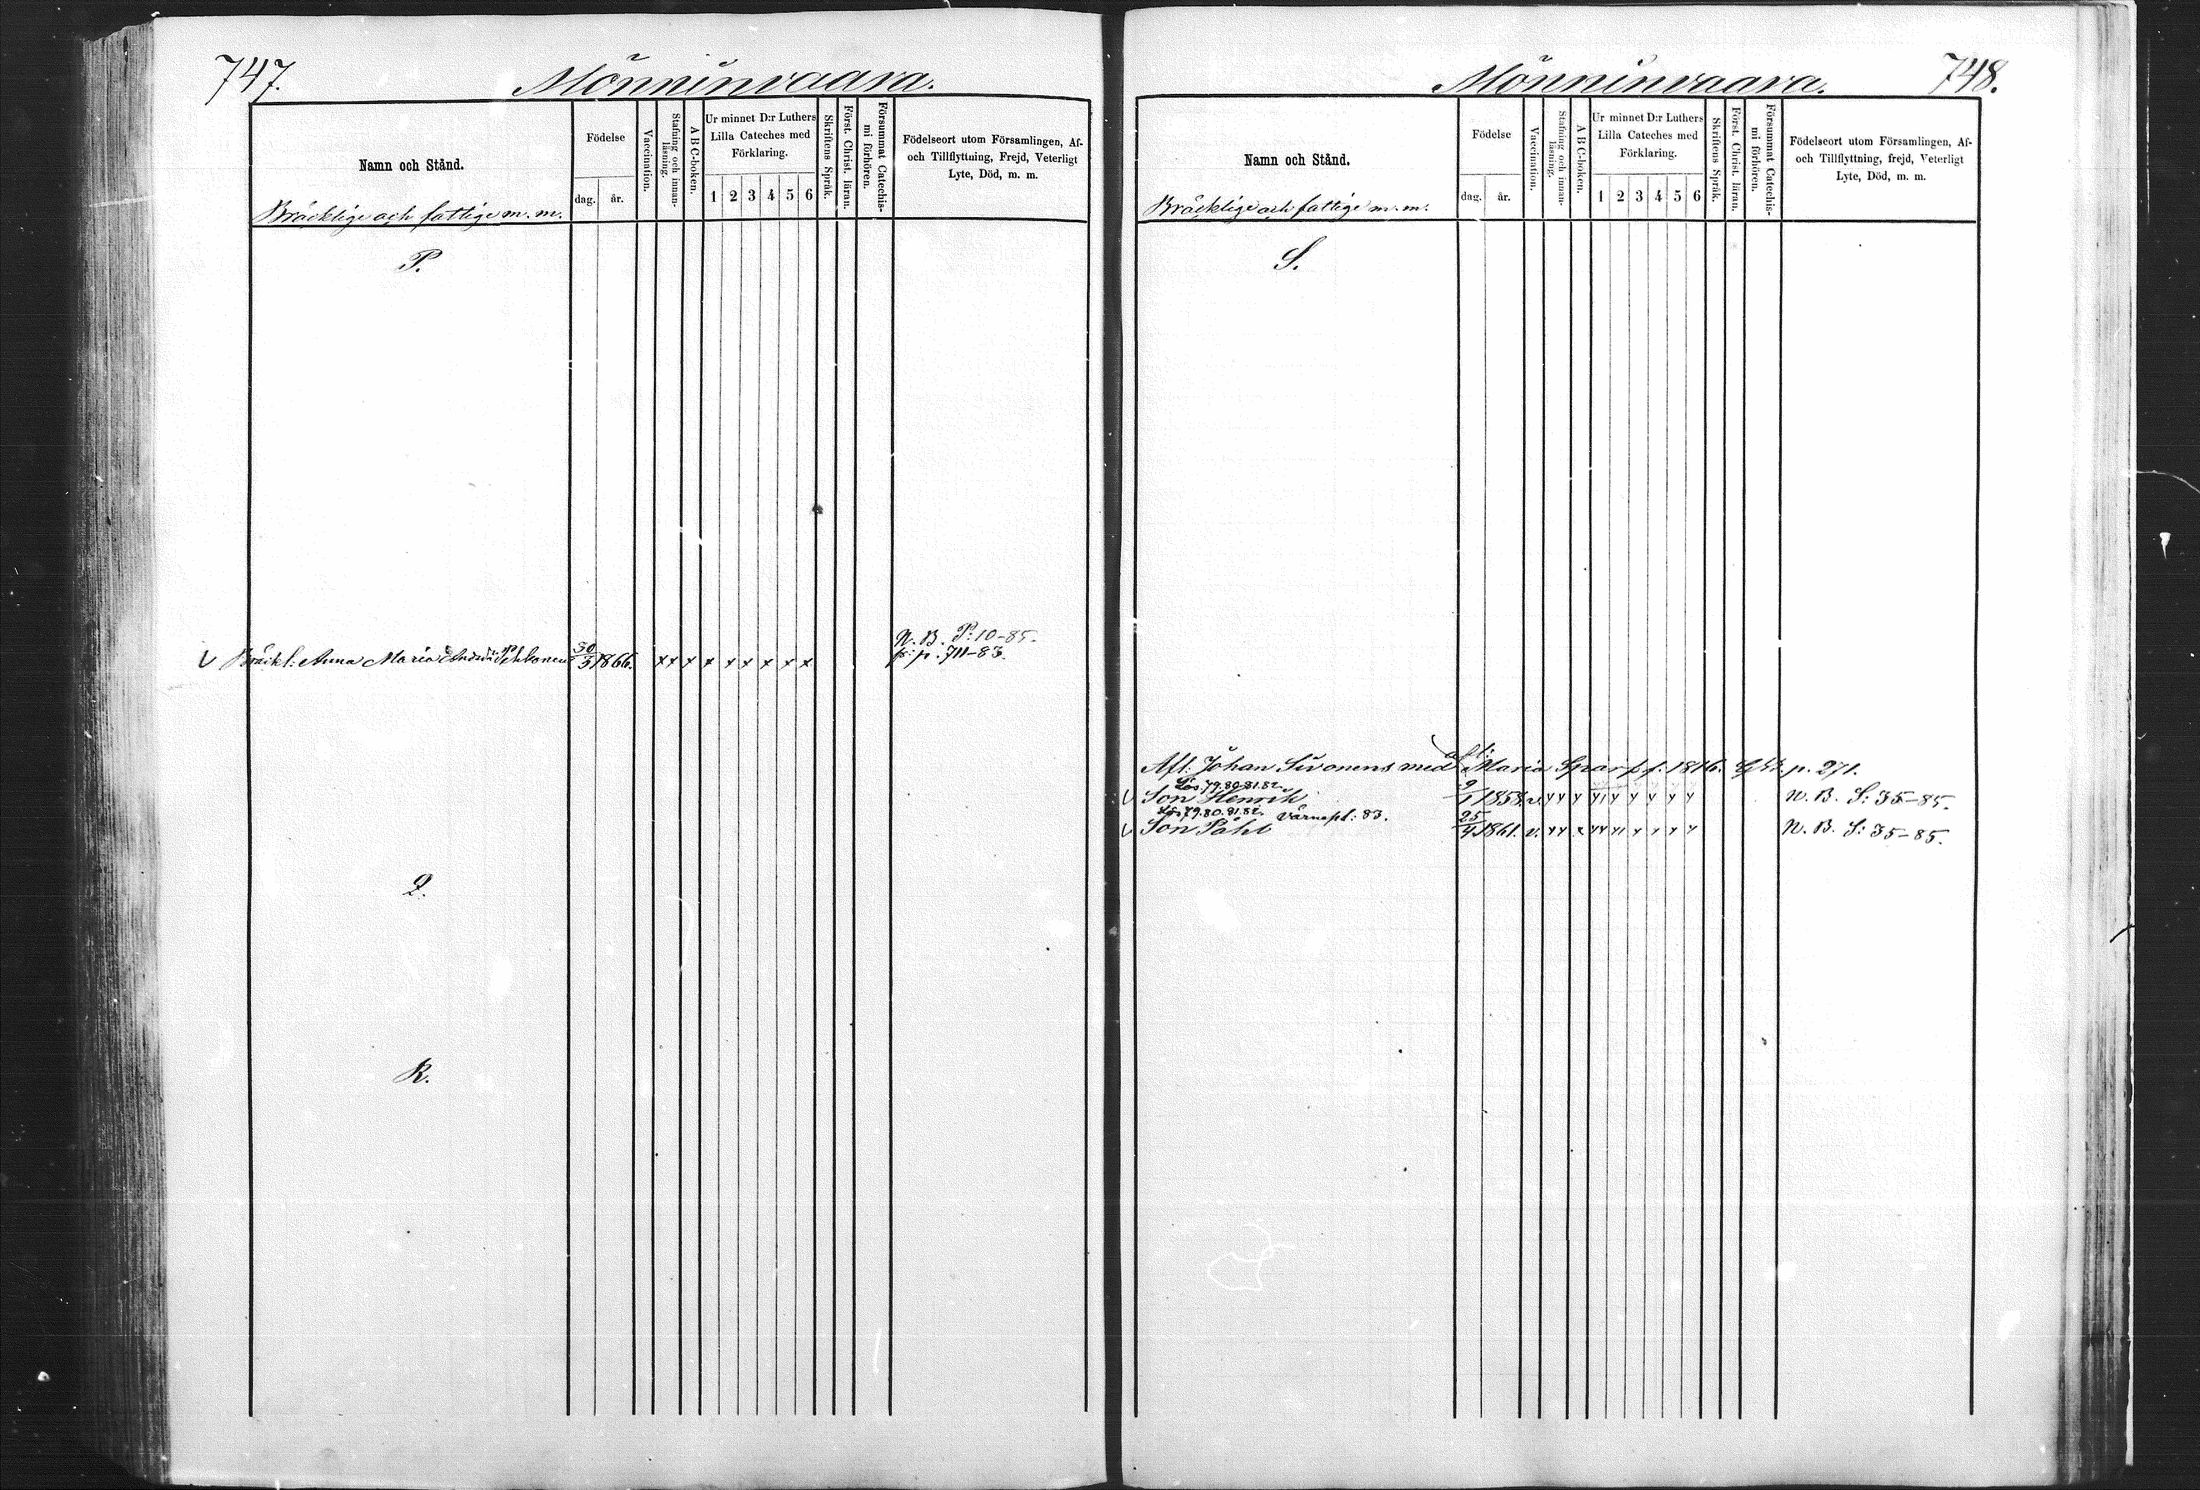 747.
Mönninvaara.
Namn och Stånd.
Bräcklige och fattige m. m.
Födelse
dag. år.
Vaccination.
Stafning och innan-
läsning.
A B C-boken.
Ur minnet D:r Luthers
Lilla Cateches med
Förklaring.
1 2 3 4 5 6
Skriftens Språk.
Först. Christ. läran.
Försummat Catechis-
mi förhören.
Födelseort utom Församlingen, Af-
och Tillflyttning, Frejd, Veterligt
Lyte, Död, m. m.
P.
N. B. P: 10-85.
v Bräckl: Anna Maria Pehkonen 30/3 1866. x x x x x x x x x p. 711-83.
Q.
R.
748.
Mönninvaara.
Namn och Stånd.
Bräcklige och fattige m. m.
Födelse
dag. år.
Vaccination.
Stafning och innan-
läsning.
A B C-boken.
Ur minnet D:r Luthers
Lilla Cateches med
Förklaring.
1 2 3 4 5 6
Skriftens Språk.
Först. Christ. läran.
Försummat Catechis-
mi förhören.
Födelseort utom Församlingen, Af-
och Tillflyttning, frejd, Veterligt
Lyte, Död, m. m.
S.
afl:
Afl: Johan Sivonens med Maria Sparf f. 1816. p. 271.
Lös. 79. 80. 81. 82.
v Son Henrik 9/1 1858. v. N. B. S: 35-85.
Lös 79. 80. 81. 82. värnepl: 83.
v Son Påhl 25/4 1861. v. N. B. S: 35-85.